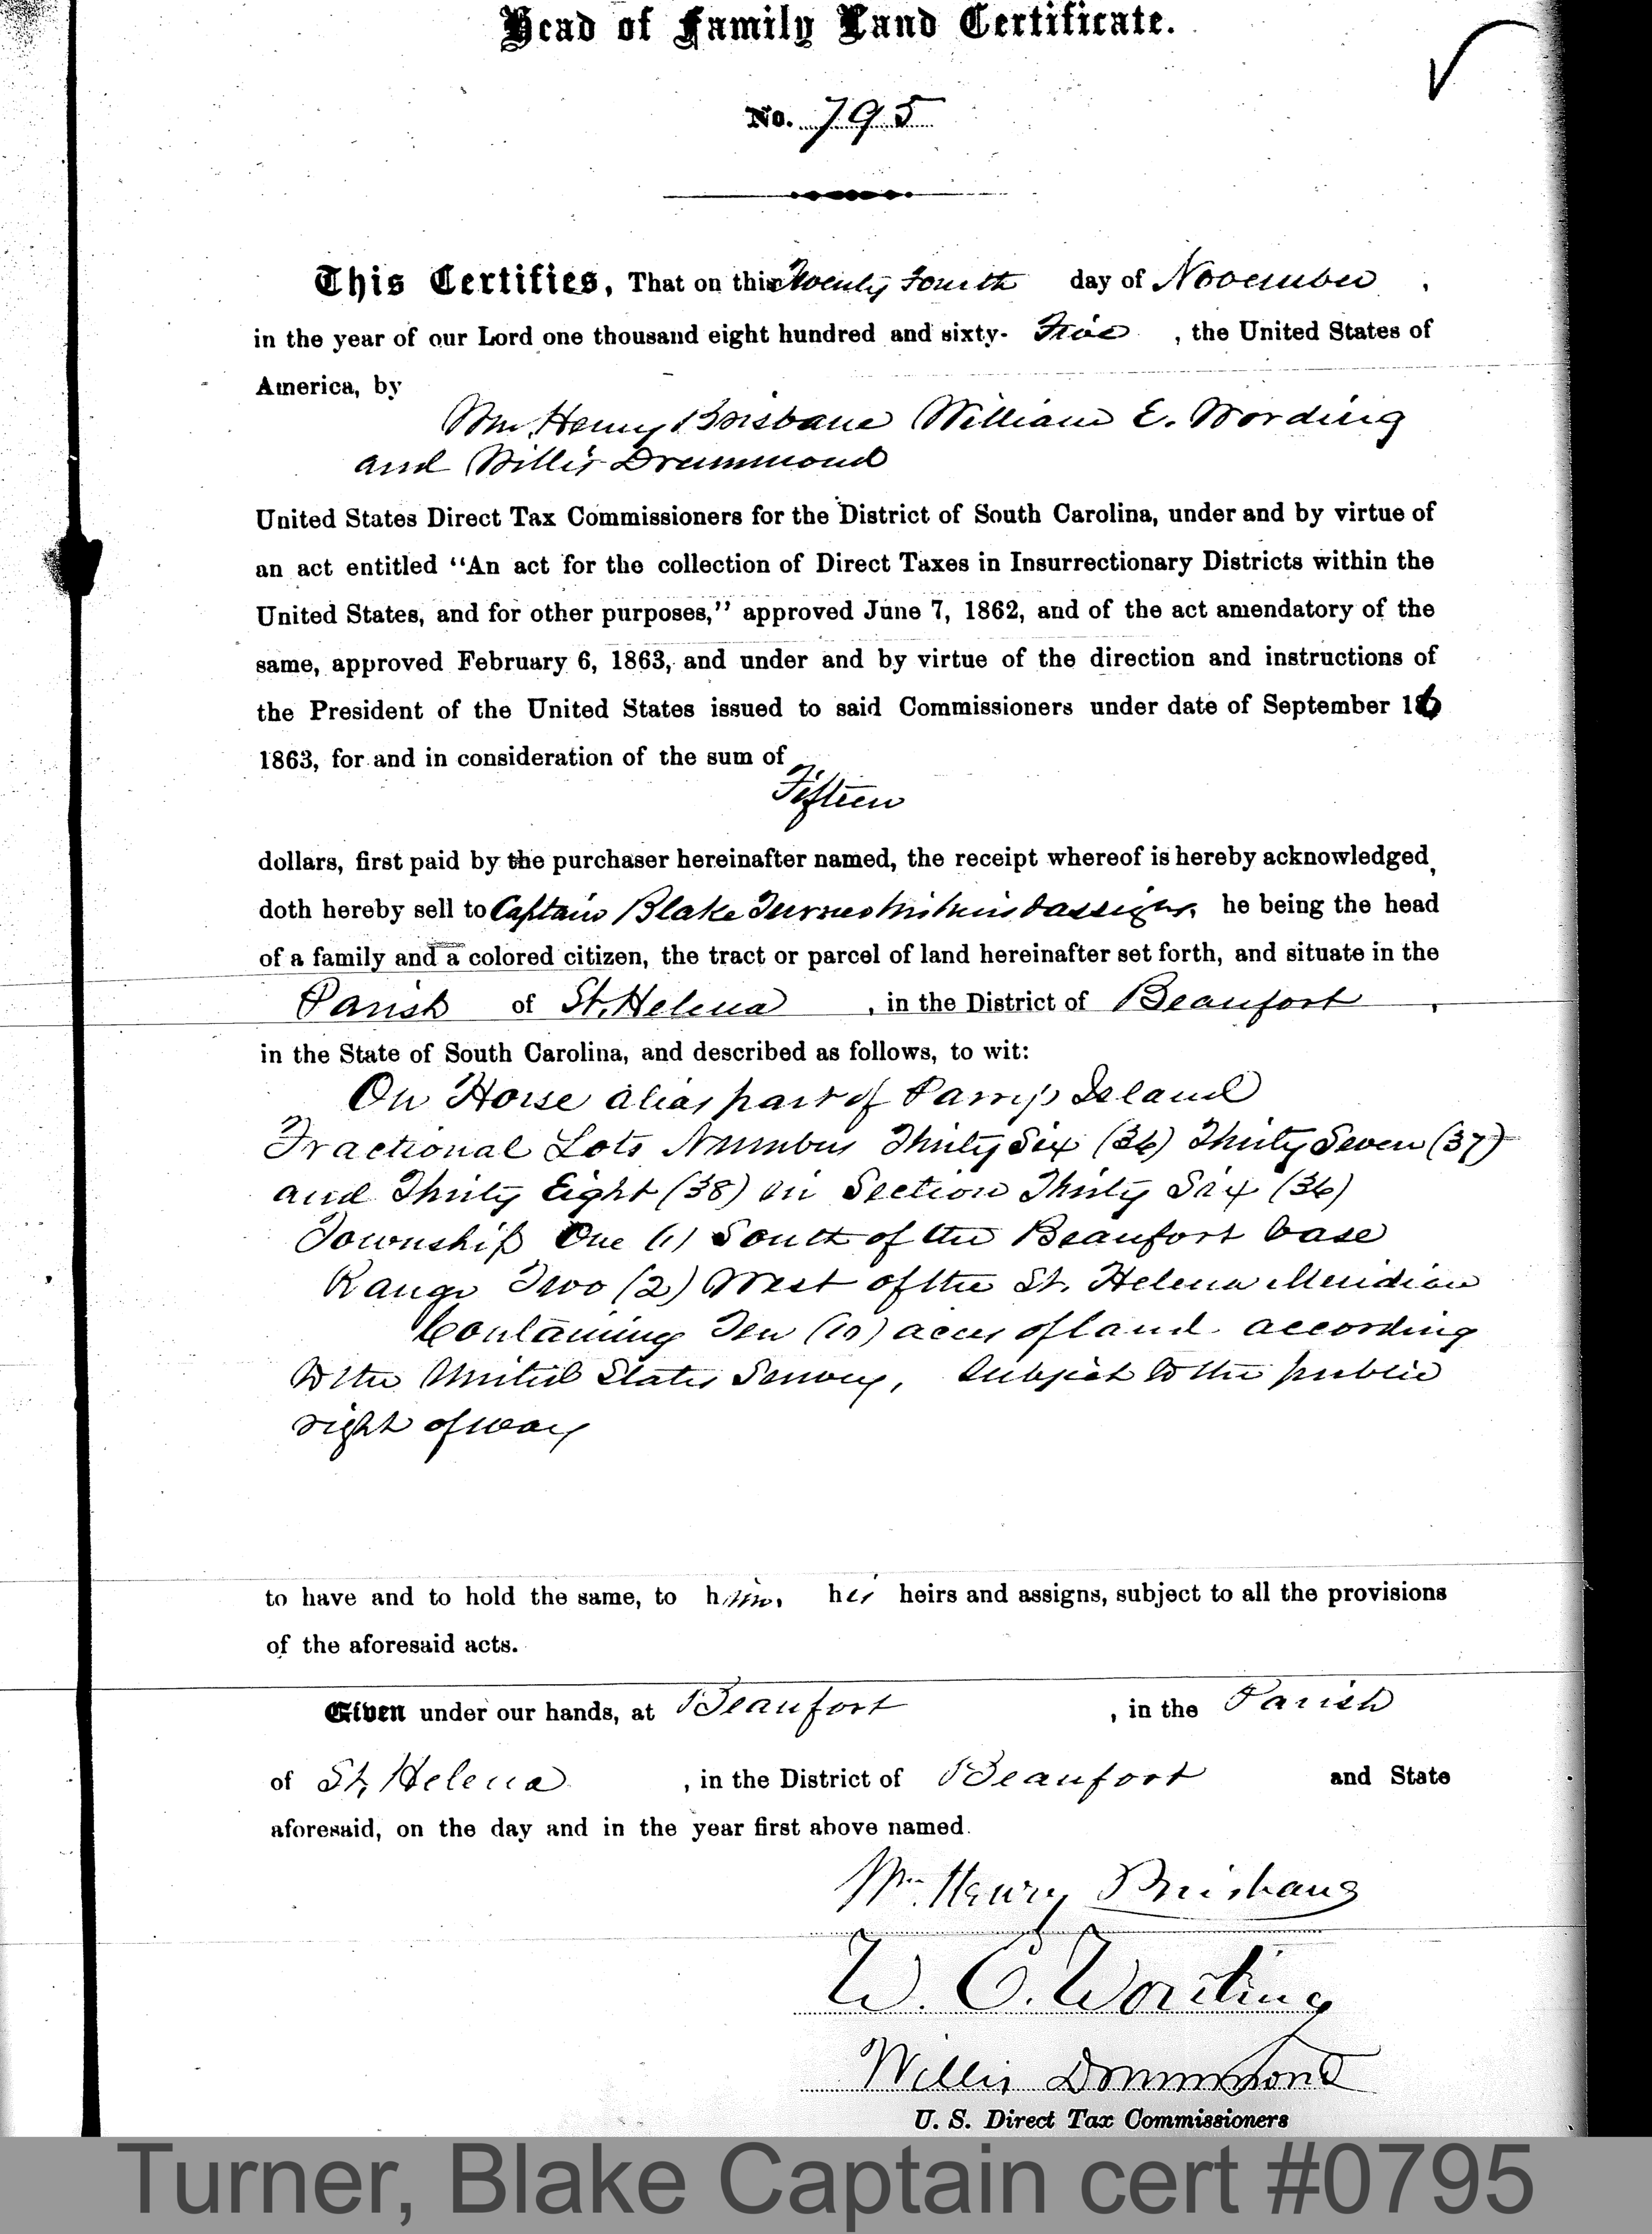 Head of Family Land Certificate.
No. 795
This Certifies, That on this Twenty Fourth day of November,
in the year of our Lord one thousand eight hundred and sixty- Five, the United States of
America, by
Wm. Henry Brisbane William E. Wording
and Willis Drummond
United States Direct Tax Commissioners for the District of South Carolina, under and by virtue of
an act entitled "An act for the collection of Direct Taxes in Insurrectionary Districts within the
United States, and for other purposes," approved June 7, 1862, and of the act amendatory of the
same, approved February 6, 1863, and under and by virtue of the direction and instructions of
the President of the United States issued to said Commissioners under date of September 16
1863, for and in consideration of the sum of
Fifteen
dollars, first paid by the purchaser hereinafter named, the receipt whereof is hereby acknowledged,
doth hereby sell to Captain Blake Turner his heirs & assigns, he being the head
of a family and a colored citizen, the tract or parcel of land hereinafter set forth, and situate in the
Parish of St. Helena, in the District of Beaufort,
in the State of South Carolina, and described as follows, to wit:
On Horse alias part of Parry's Island
Fractional Lots Numbers Thirty Six (36) Thirty Seven (37)
and Thirty Eight (38) in Section Thirty Six (36)
Township One (1) South of the Beaufort base
Range Two (2) West of the St. Helena Meridian
Containing Ten (10) acres of land according
to the United States Survey, Subject to the public
right of way
to have and to hold the same, to him, his heirs and assigns, subject to all the provisions
of the aforesaid acts.
Given under our hands, at Beaufort, in the Parish
of St. Helena, in the District of Beaufort and State
aforesaid, on the day and in the year first above named.
Wm. Henry Brisbane
W. E. Wording
Willis Drummond
U. S. Direct Tax Commissioners
Turner, Blake Captain cert #0795